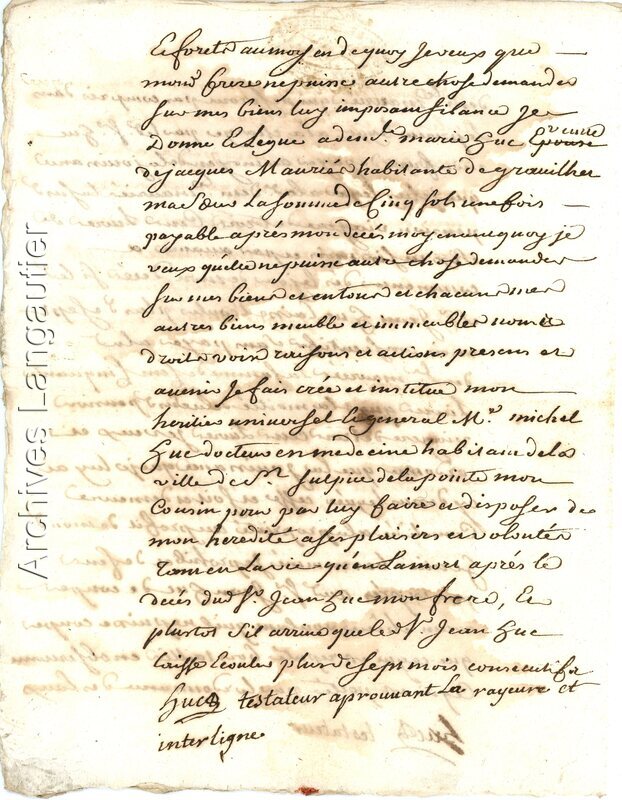 Et forets au moyen de quoy je veux que
mond. frere ne puisse autre chose demander
sur mes biens luy imposant silance Je
Donne et legue a dem.lle marie huc veuve
Epouse
de jacques Mauriés habitante de grouilher
ma sœur La somme de Cinq sols une fois
payable aprés mon decés moyenant quoy je
veux qu'elle ne puisse autre chose demander
sur mes biens et en tous et chacuns mes
autres biens meuble et immeubles noms
droits voix raisons et actions presens et
avenir Je fais crée et institue mon
heritié universel et general M.r michel
huc docteur en medecine habitant de la
ville de St. Sulpice de la pointe mon
Cousin pour par luy faire et disposer de
mon heredité a ses plaisirs et volontés
Tant en La vie qu'en La mort aprés le
decés dud Sr. Jean huc mon frere, Et
plustot s'il arrive que le d Sr. Jean huc
laisse Ecouler plus de sept mois consecutifs
huc testateur aprouvant La rayeure et
interligne
huc testateur
Archives Langautier